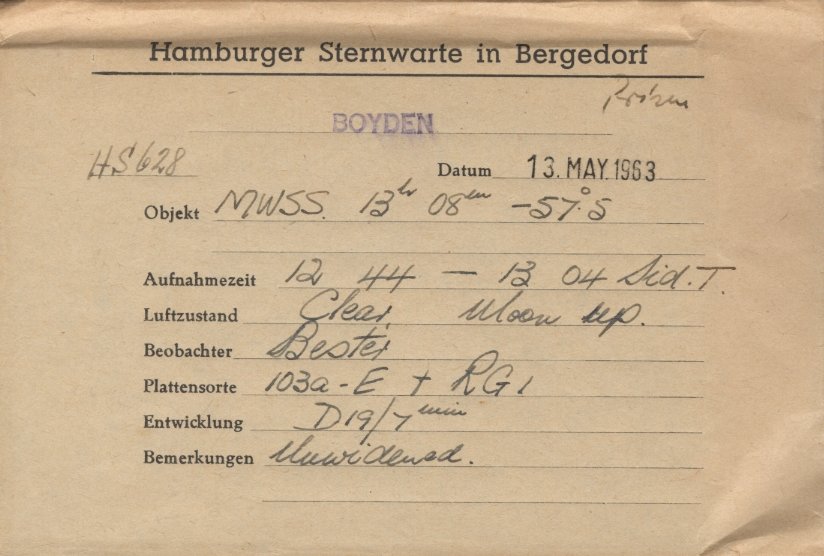 Hamburger Sternwarte in Bergedorf
Prizm
BOYDEN
HS 628
Datum 13. MAY. 1963
Objekt MWSS. 13hr 08m -57°.5
Aufnahmezeit 12 44 — 13 04 Sid. T.
Luftzustand Clear Moon up.
Beobachter Bester
Plattensorte 103a-E + RG1
Entwicklung D19/7 min
Bemerkungen Unwidened.